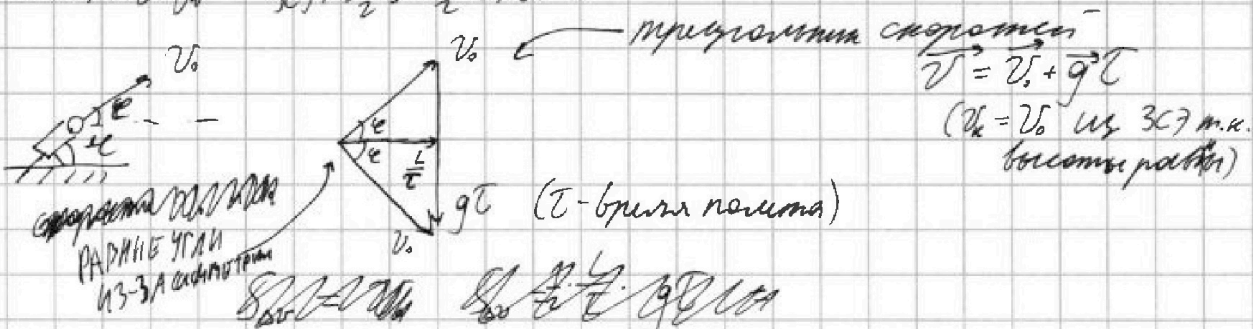 треугольник скоростей
v⃗ = v⃗₀ + g⃗τ
(vₖ = v₀ из ЗСЭ т.к.
высоты равны)
v₀
φ
φ
v₀
φ
φ
L/τ
gτ (τ - время полета)
v₀
РАВНЫЕ УГЛЫ
ИЗ-ЗА симметрии